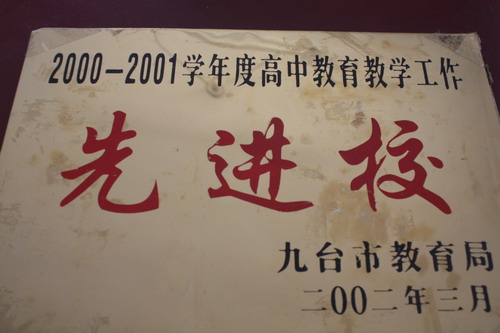 2000-2001学年度高中教育教学工作
先进校
九台市教育局
二00二年三月